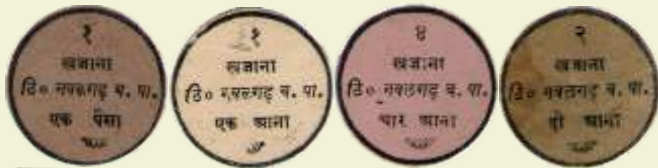 १
खजाना
ठि० नवलगढ़ ब. पा.
एक पैसा
१
खजाना
ठि० नवलगढ़ ब. पा.
एक आना
४
खजाना
ठि० नवलगढ़ ब. पा.
चार आना
२
खजाना
ठि० नवलगढ़ ब. पा.
दो आना